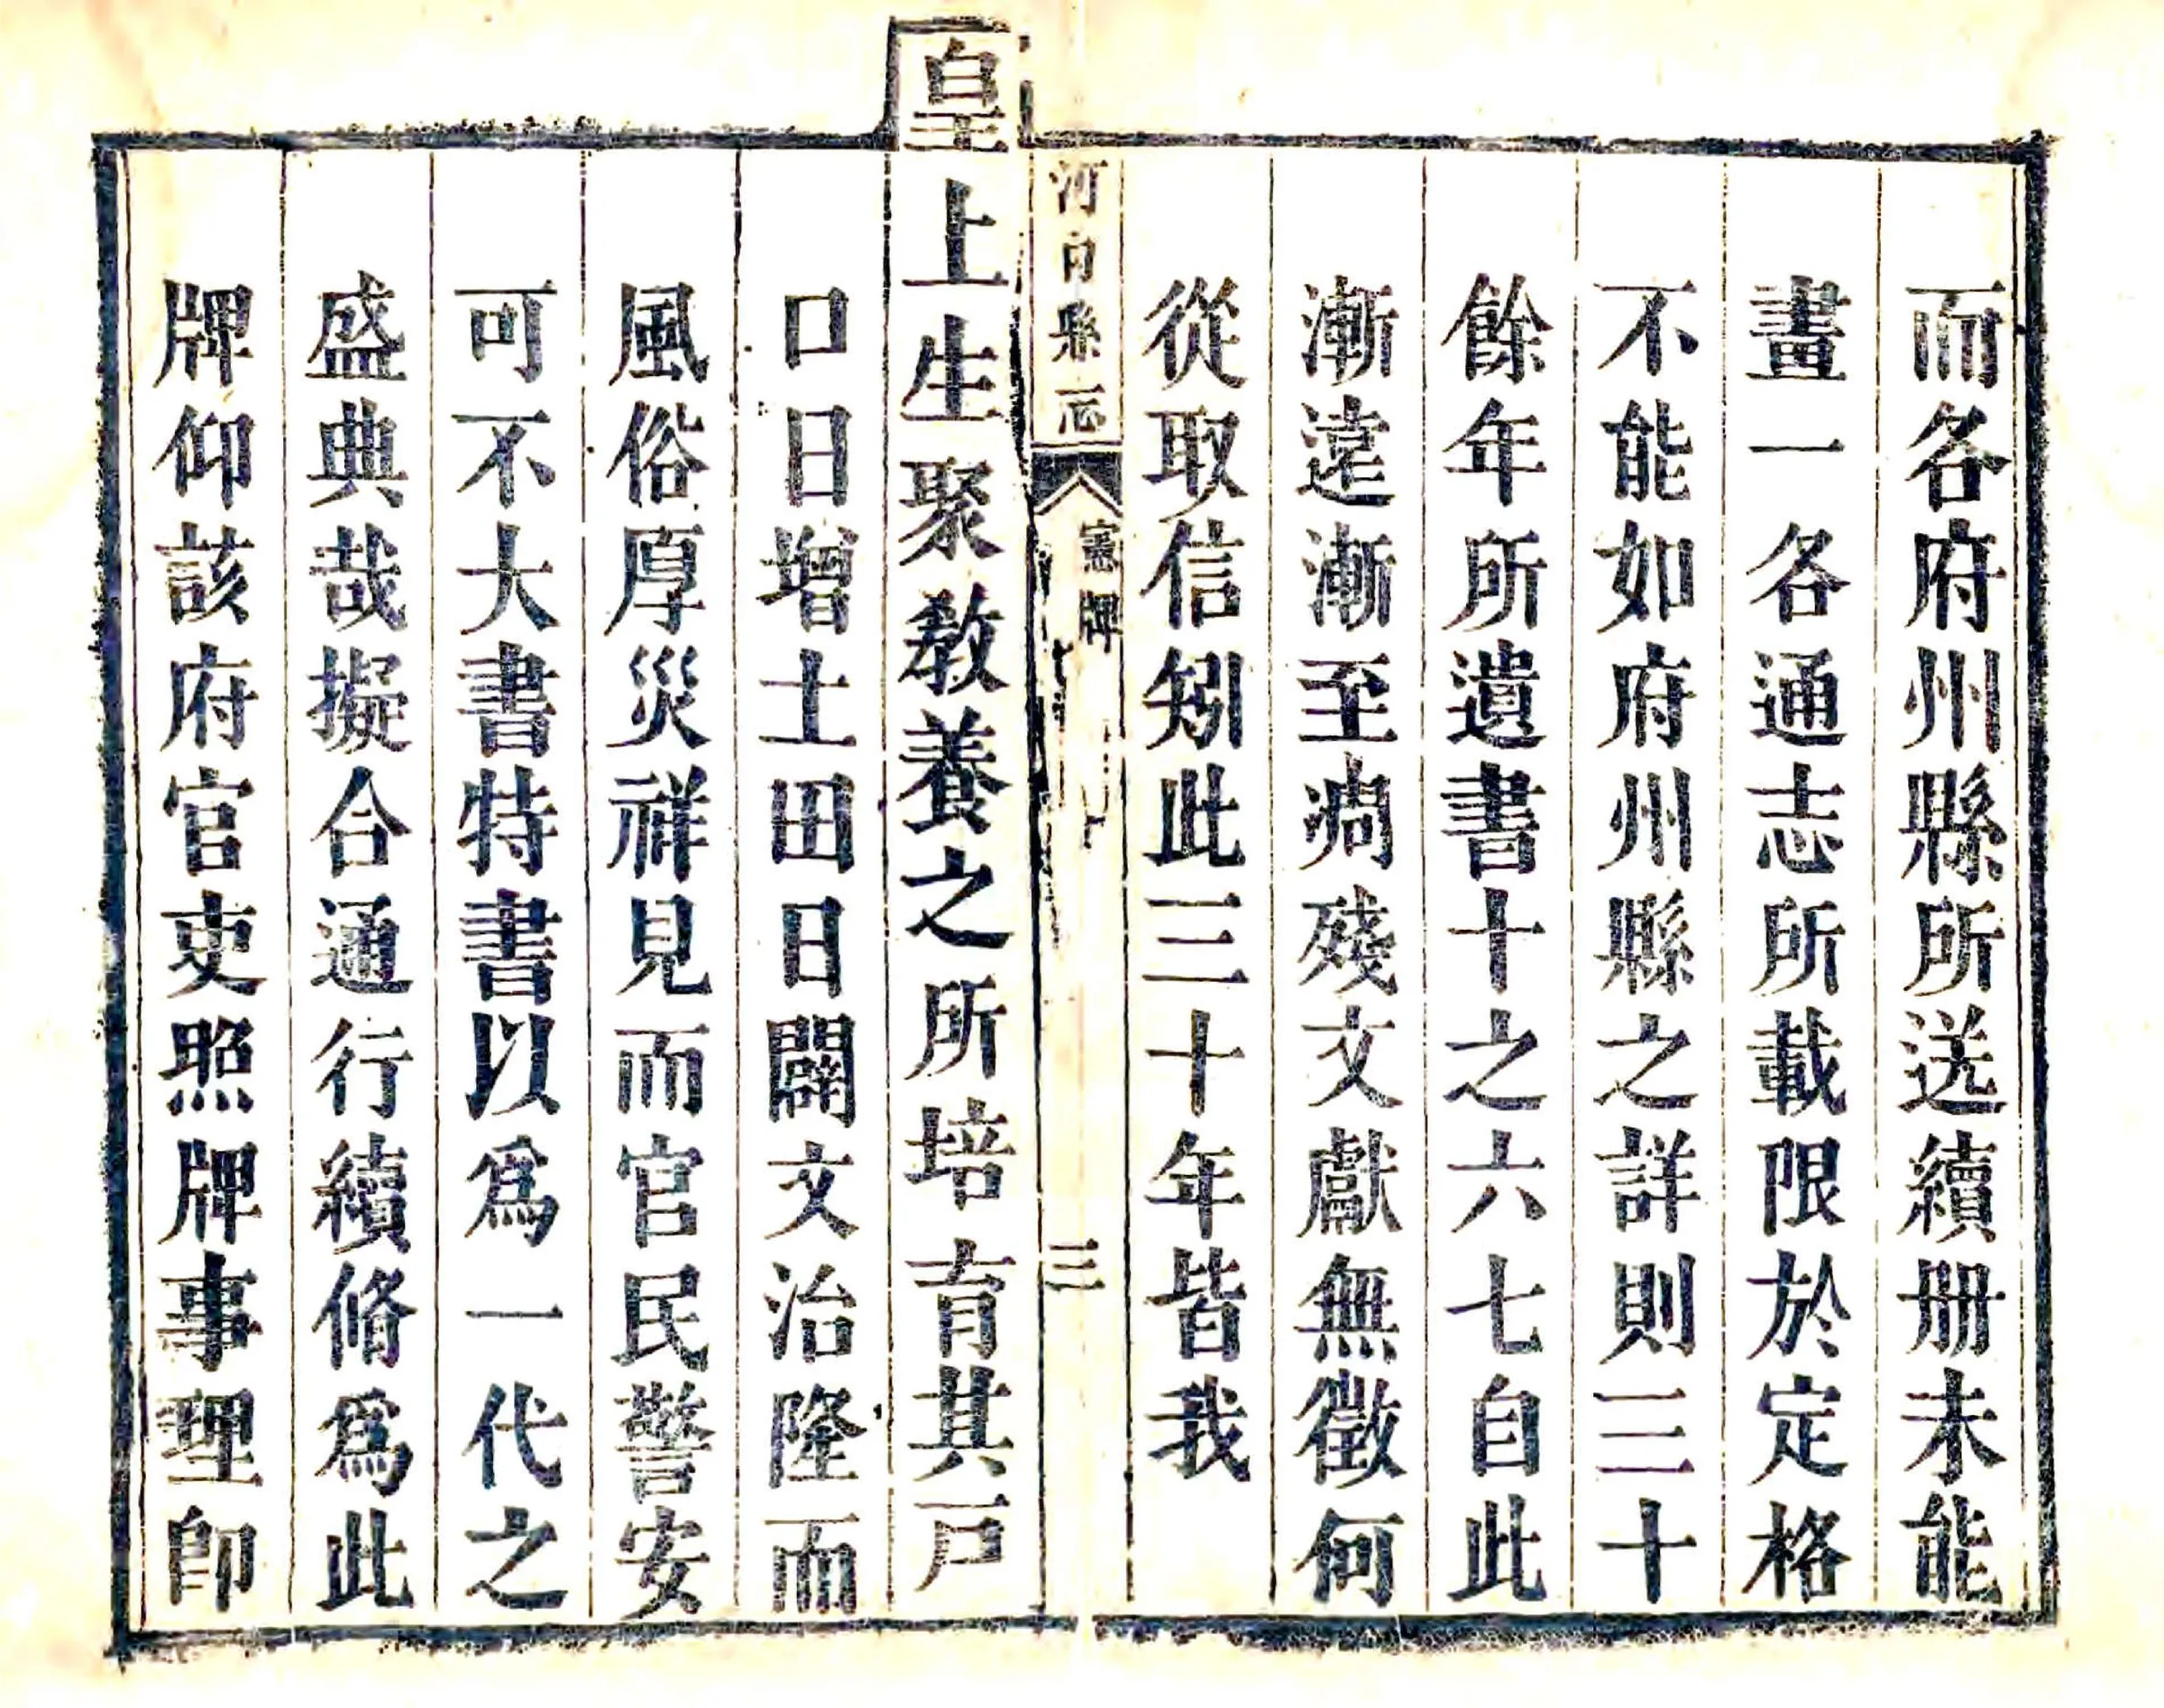 而各府州縣所送續册未能
畫一各通志所載限於定格
不能如府州縣之詳則三十
餘年所遺書十之六七自此
漸遠漸漸至凋殘文獻無徵何
從取信矧此三十年皆我
河內縣志
憲牌
三
皇上生聚敎養之所培育其戸
口日增土田日闢文治隆而
風俗厚災祥見而官民警安
可不大書特書以爲一代之
盛典哉擬合通行續脩爲此
牌仰該府官吏照牌事理卽